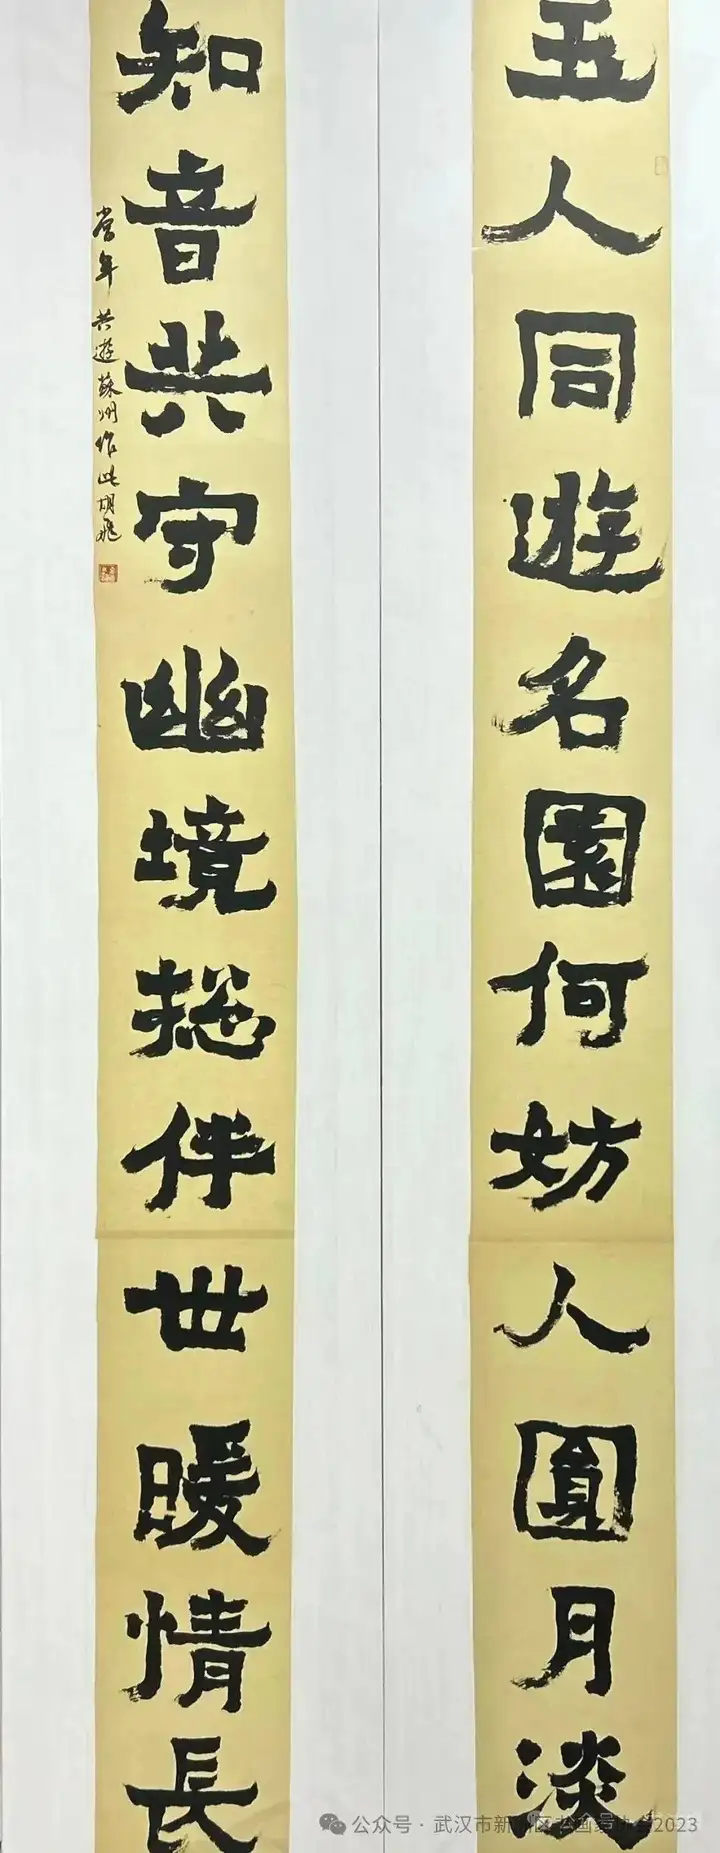 五人同遊名園何妨人圓月淡
知音共守幽境總伴世暖情長
當年共遊蘇州作此胡飛
公众号·武汉市新洲区书画家协会2023